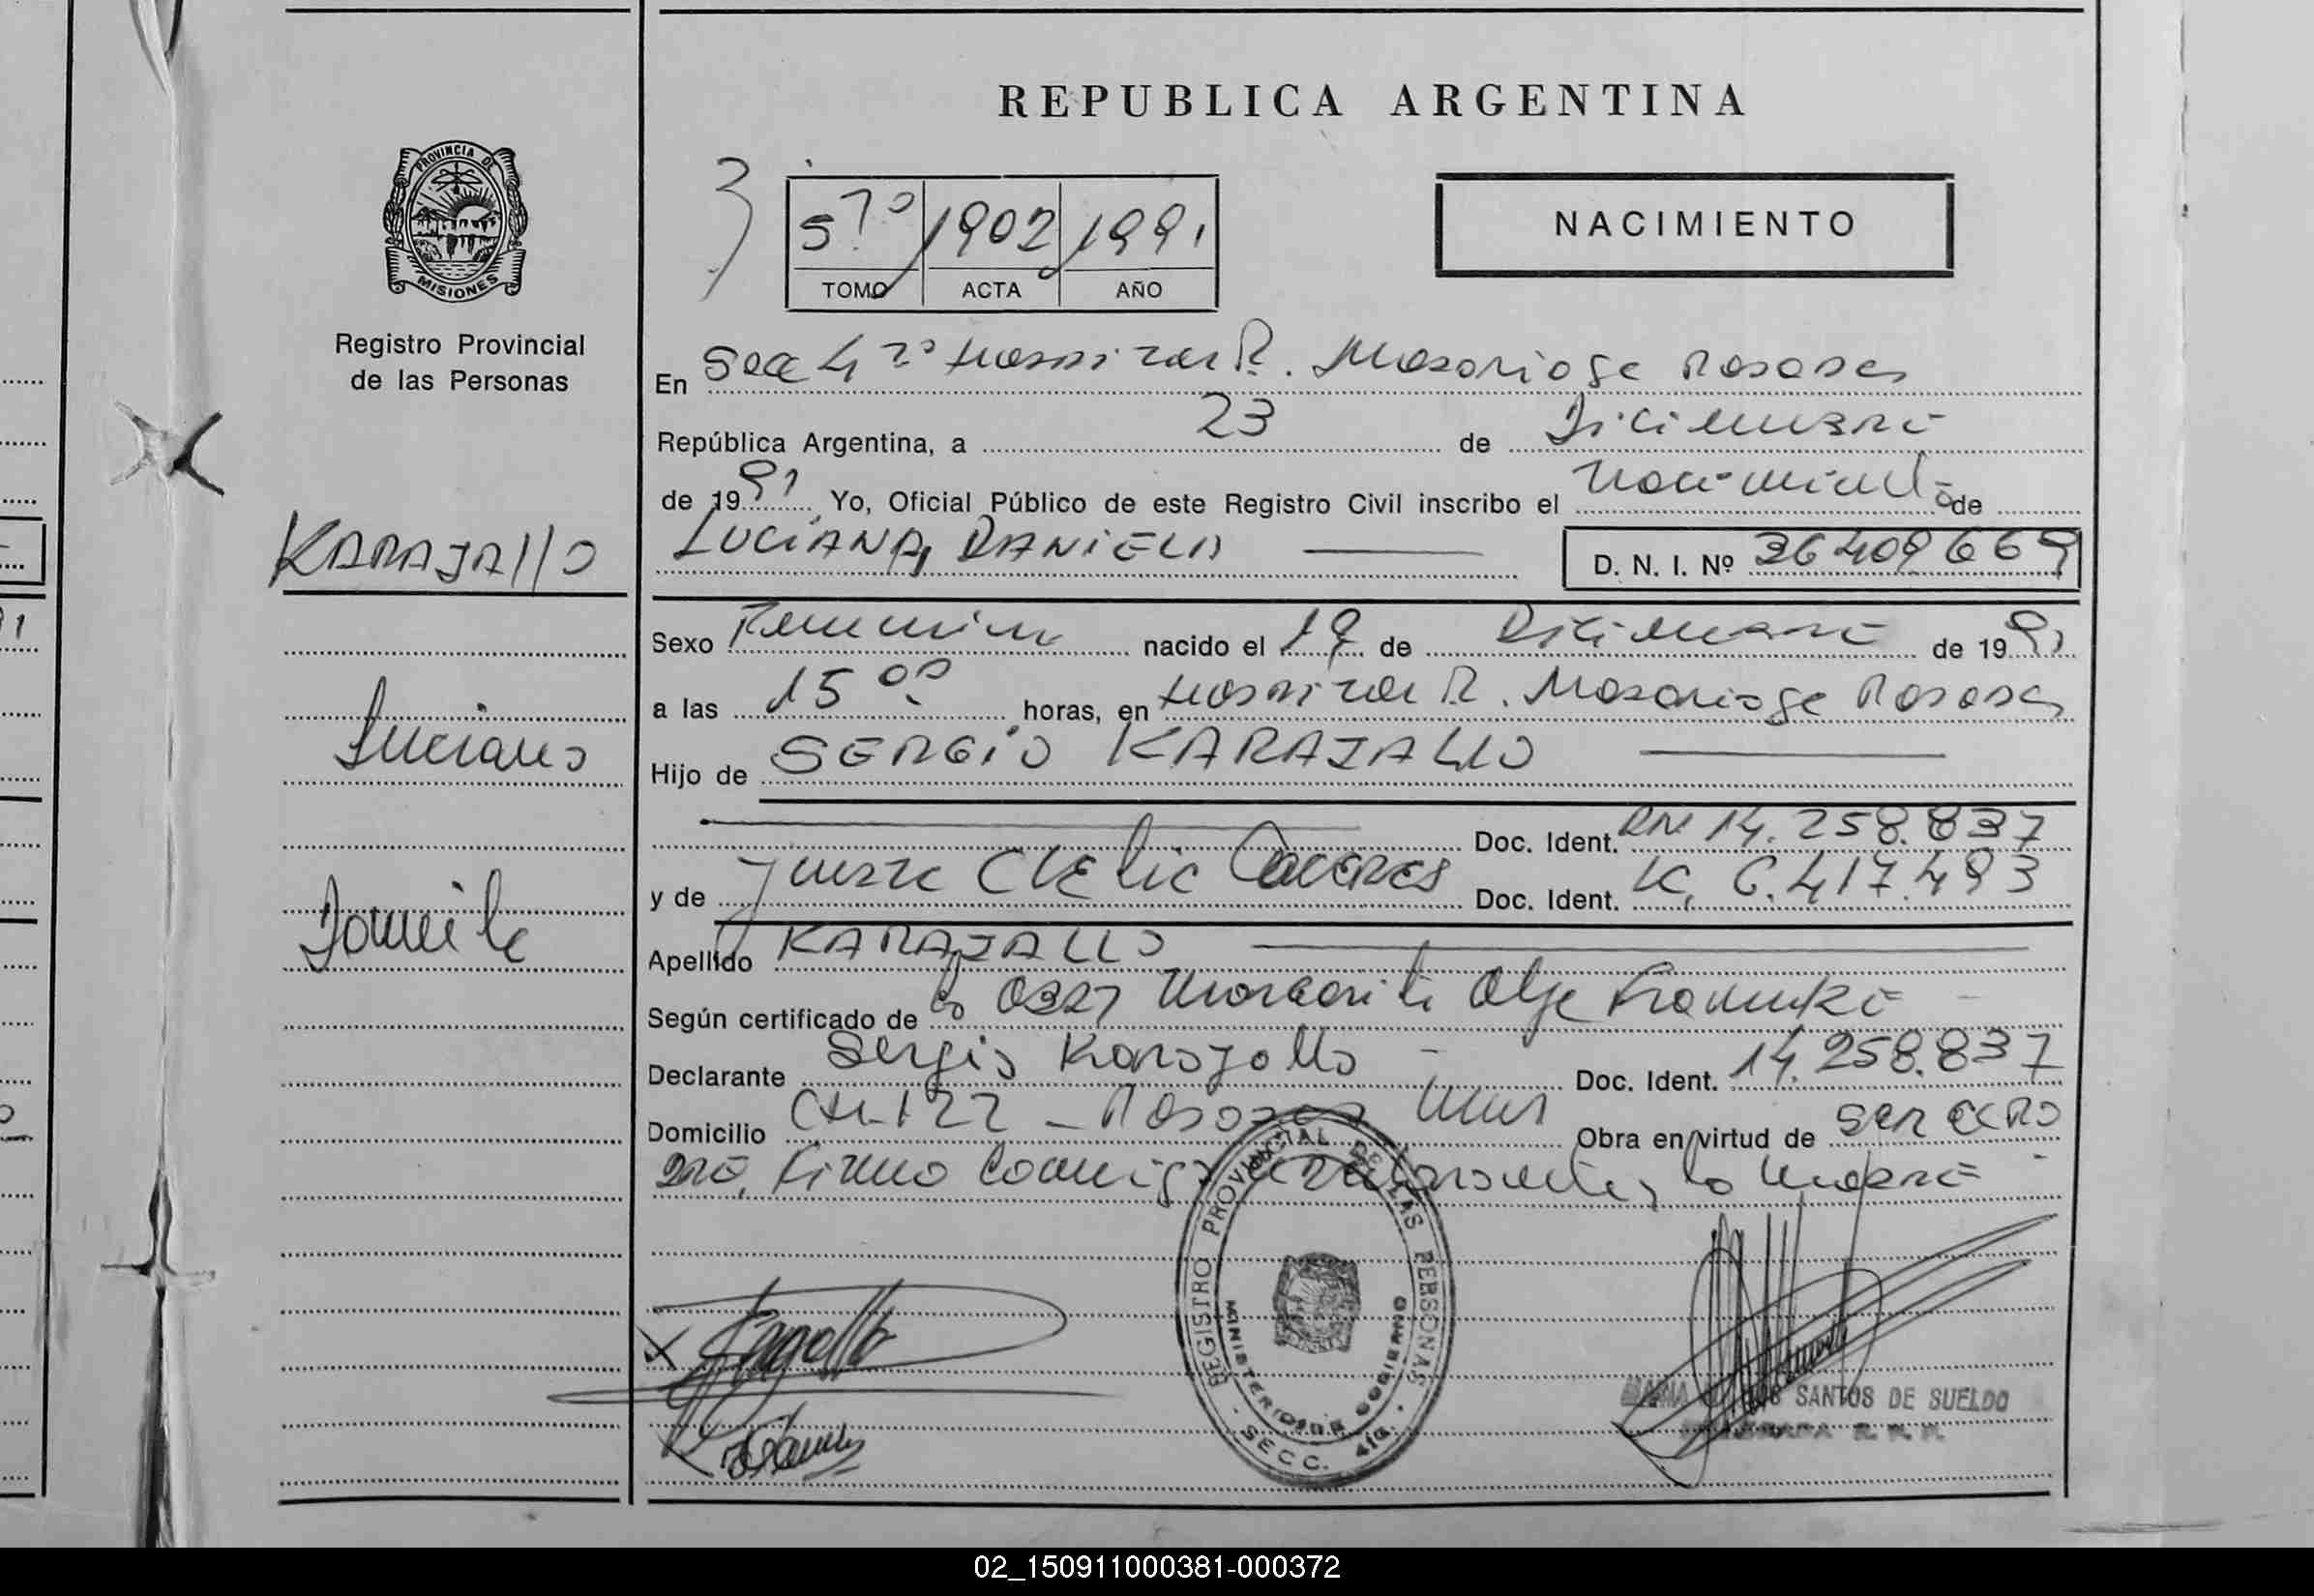 REPUBLICA ARGENTINA
PROVINCIA DE
MISIONES
Registro Provincial
de las Personas
5to 1902 1991
TOMO ACTA AÑO
NACIMIENTO
En Sec 4ta Hospital R. Madariaga Posadas
República Argentina, a 23 de Diciembre
de 1991 Yo, Oficial Público de este Registro Civil inscribo el nacimiento de
KARAJALLO
LUCIANA DANIELA
D. N. I. Nº 36409669
Sexo Femenino nacido el 19 de Diciembre de 1991
a las 15 00 horas, en Hospital R. Madariaga Posadas
Luciana
Hijo de SERGIO KARAJALLO
Doc. Ident. DNI 14.258.837
y de Clelia Doc. Ident. 6.417.493
Daniela
Apellido KARAJALLO
Según certificado de la Margarita Olga
Declarante Sergio Karajallo Doc. Ident. 14.258.837
Domicilio Ch-122 - Posadas Mnes Obra en virtud de ser el Pa
dre, Firma Conmigo el declarante y la Madre
REGISTRO PROVINCIAL DE LAS PERSONAS
MINISTERIO DE GOBIERNO
SECC. 4ta.
SANTOS DE SUELDO
02_150911000381-000372